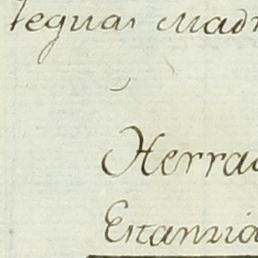 teguas Madr
Herrad
Estansia